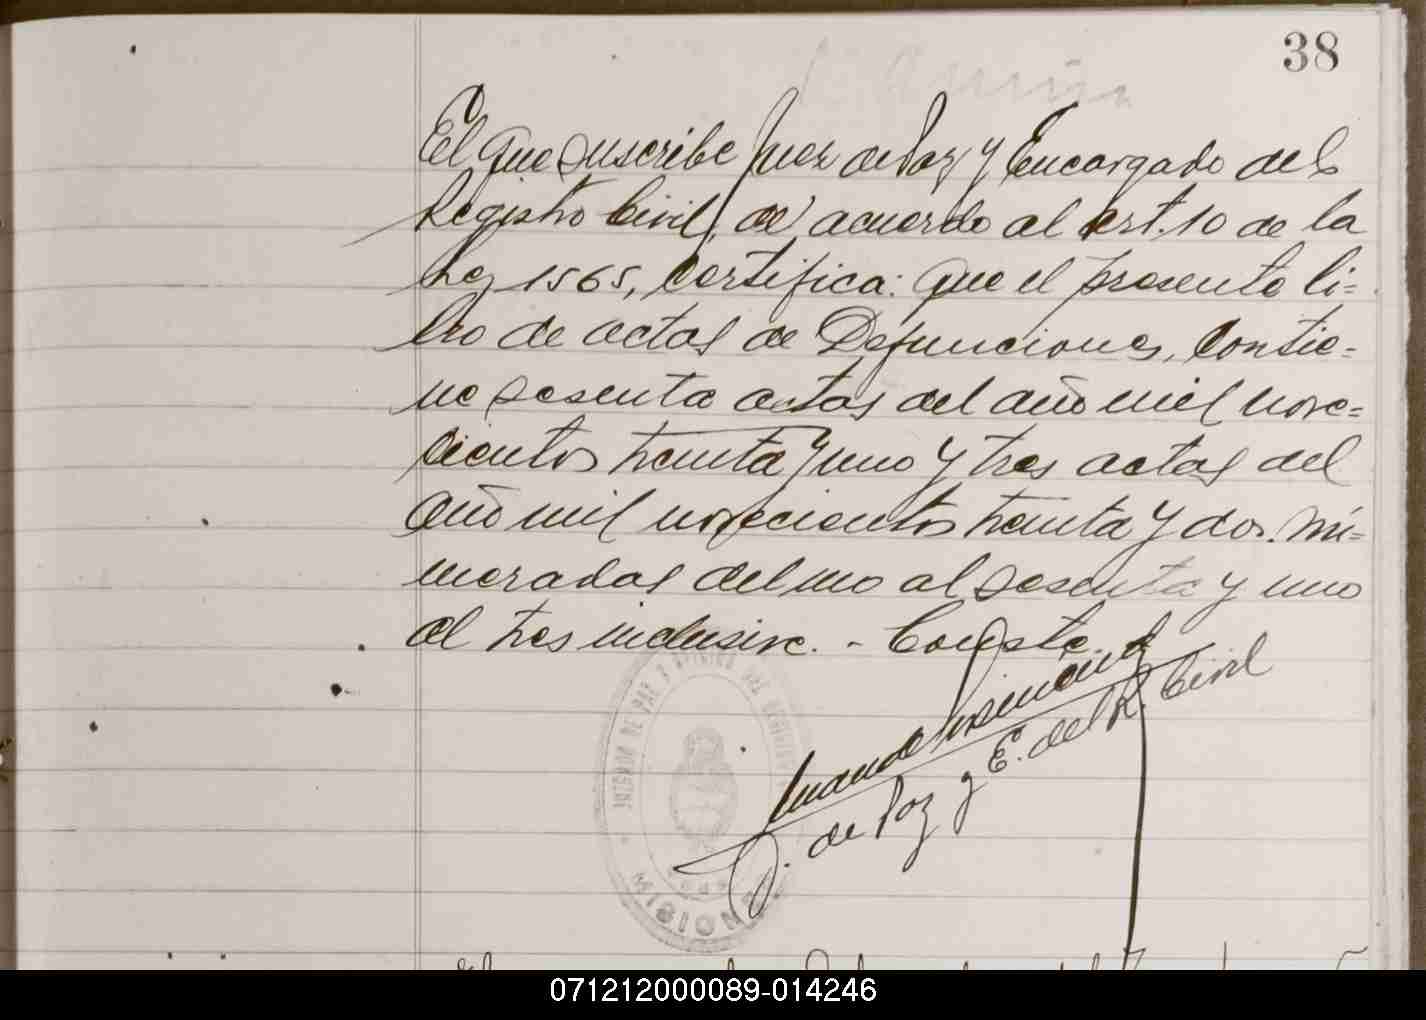 38
El que suscribe Juez de Paz y Encargado del
Registro Civil, de acuerdo al art. 10 de la
Ley 1565, certifica: que el presente li=
bro de actas de Defunciones, contie=
ne sesenta actas del año mil nove=
cientos treinta y uno y tres actas del
año mil novecientos treinta y dos. Nú=
meradas del uno al sesenta y uno
al tres inclusive. - Conste.
J. de Paz y E. del R. Civil
JUZGADO DE PAZ Y OFICINA DEL REGISTRO
MISIONES
071212000089-014246